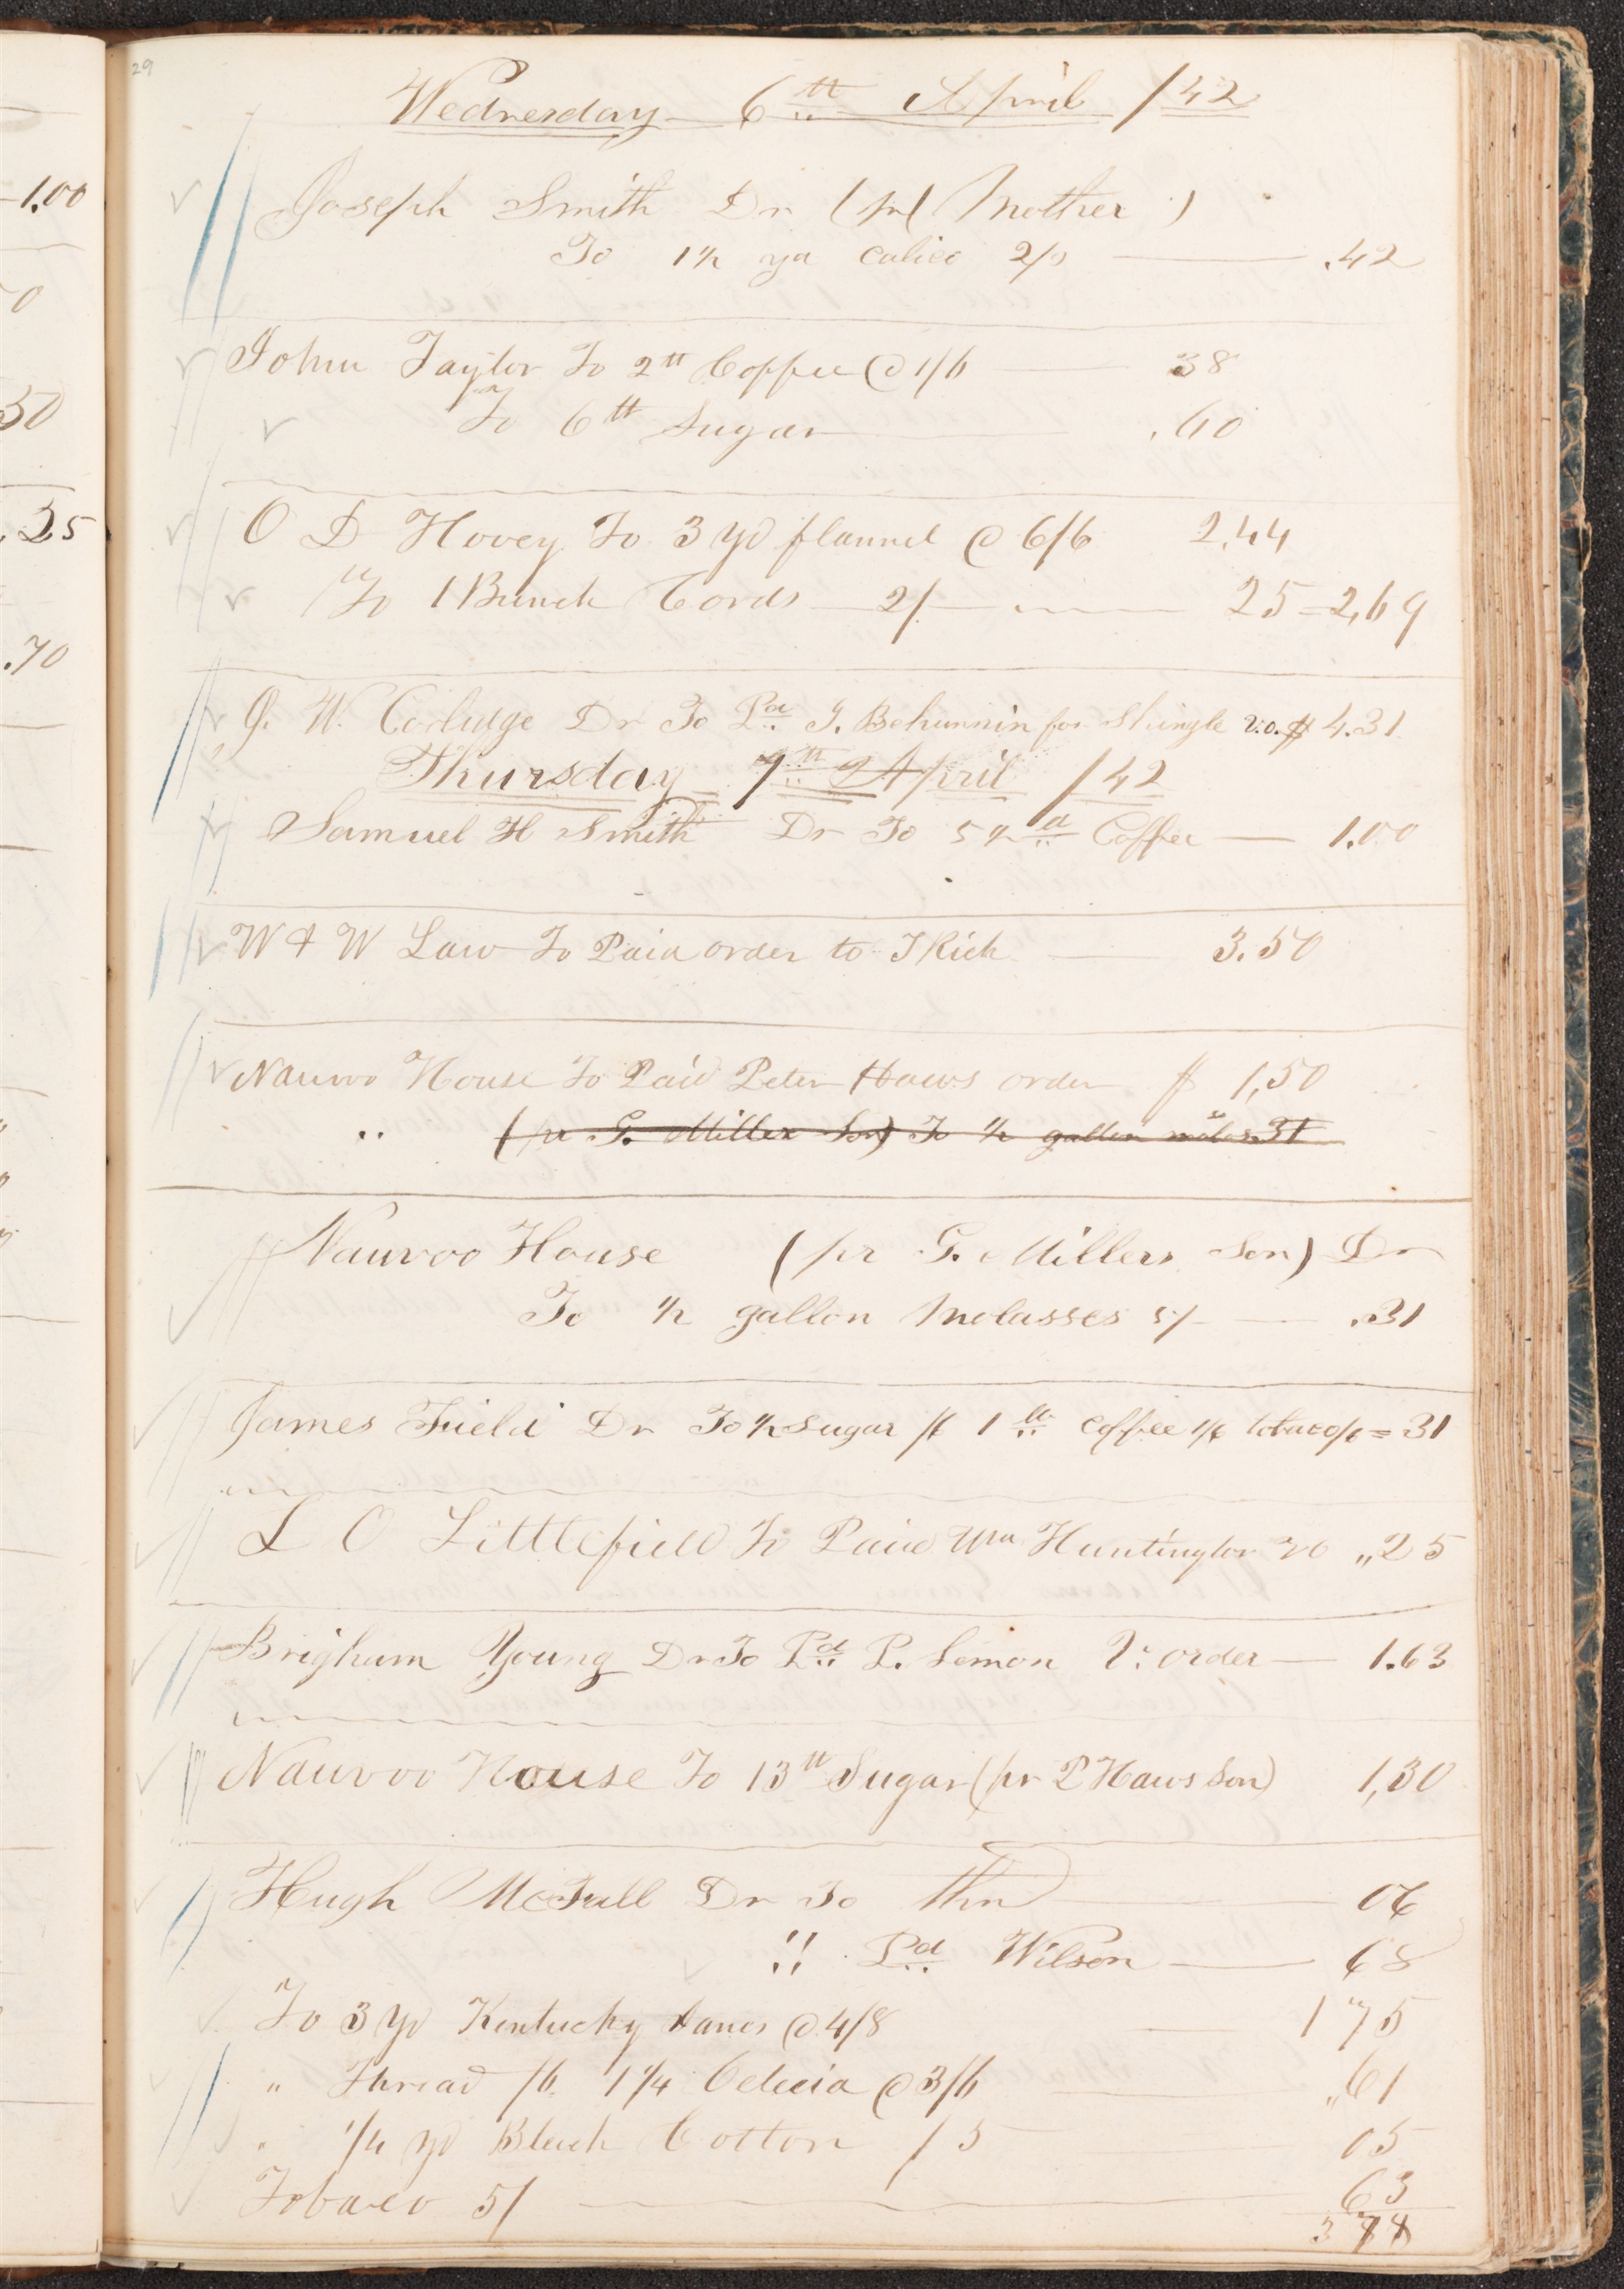 29
Wednesday 6th April /42
-1.00
Joseph Smith Dr (pr Mother)
To 1½ yd calico 2/3 .42
John Taylor To 2 tt Coffee @ 1/6 38
50
To 6 tt Sugar .60
.25
O D Hovey To 3 yd flannel @ 6/6 2,44
To 1 Bunch Cords 2/- 25 = 2,69
.70
J. W. Coolidge Dr To Pd I. Behunnin for Shingle V.O. $ 4.31
Thursday 7th April /42
Samuel H Smith Dr To 5½ tt Coffee 1.00
W & W Law To Paid order to T Rich 3.50
Nauvoo House To Paid Peter Haws order $ 1,50
" (pr G. Miller Son) To ½ gallon molas .31
Nauvoo House (pr G. Millers Son) Dr
To ½ gallon Molasses 5/- .31
James Field Dr To ½ sugar /6 1 tt coffee 1/6 tobaco /6 = 31
L O Littlefield To Paid Wm Huntington VO "25
Brigham Young Dr To Pd P. Lemon V: order 1.63
Nauvoo House To 13 tt Sugar (pr P Haws Son) 1,30
Hugh McFall Dr To 06
" Pd Wilson 68
To 3 yd Kentucky Janes @ 4/8 1 75
" Thread /6. 1¼ Celecia @ 3/6 "61
" ¼ yd Bleach Cotton /5 05
Tobacco 5/ 63
3 78